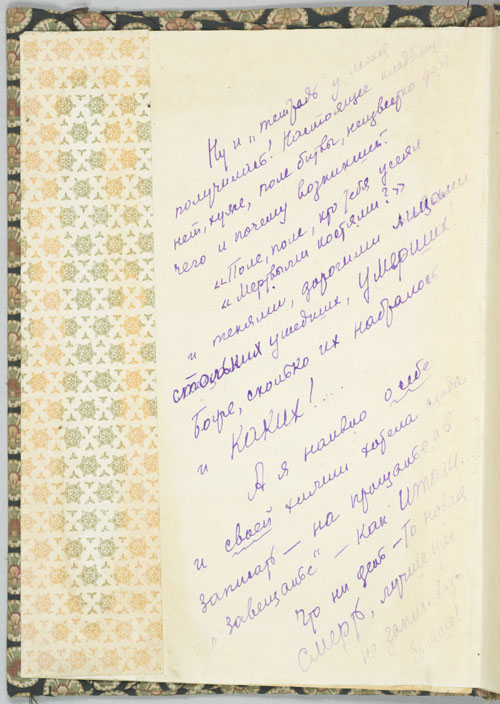 Ну и „тетрадь" у меня
получилась! Настоящее кладбище
нет, хуже, поле битвы, неизвестно для
чего и почему возникшей.
«Поле, поле, кто тебя усеял
«Мёртвыми костями?»»
и тенями, дорогими лицами
стольких ушедших, умерших
Боже, сколько их набралось
и каких!...
А я наивно о себе
и своей жизни хотела сюда
записать — на прощанье и в
„завещанье" — как итоги...
Что ни день — то новая
смерть, лучше уж
не записывать
больше!